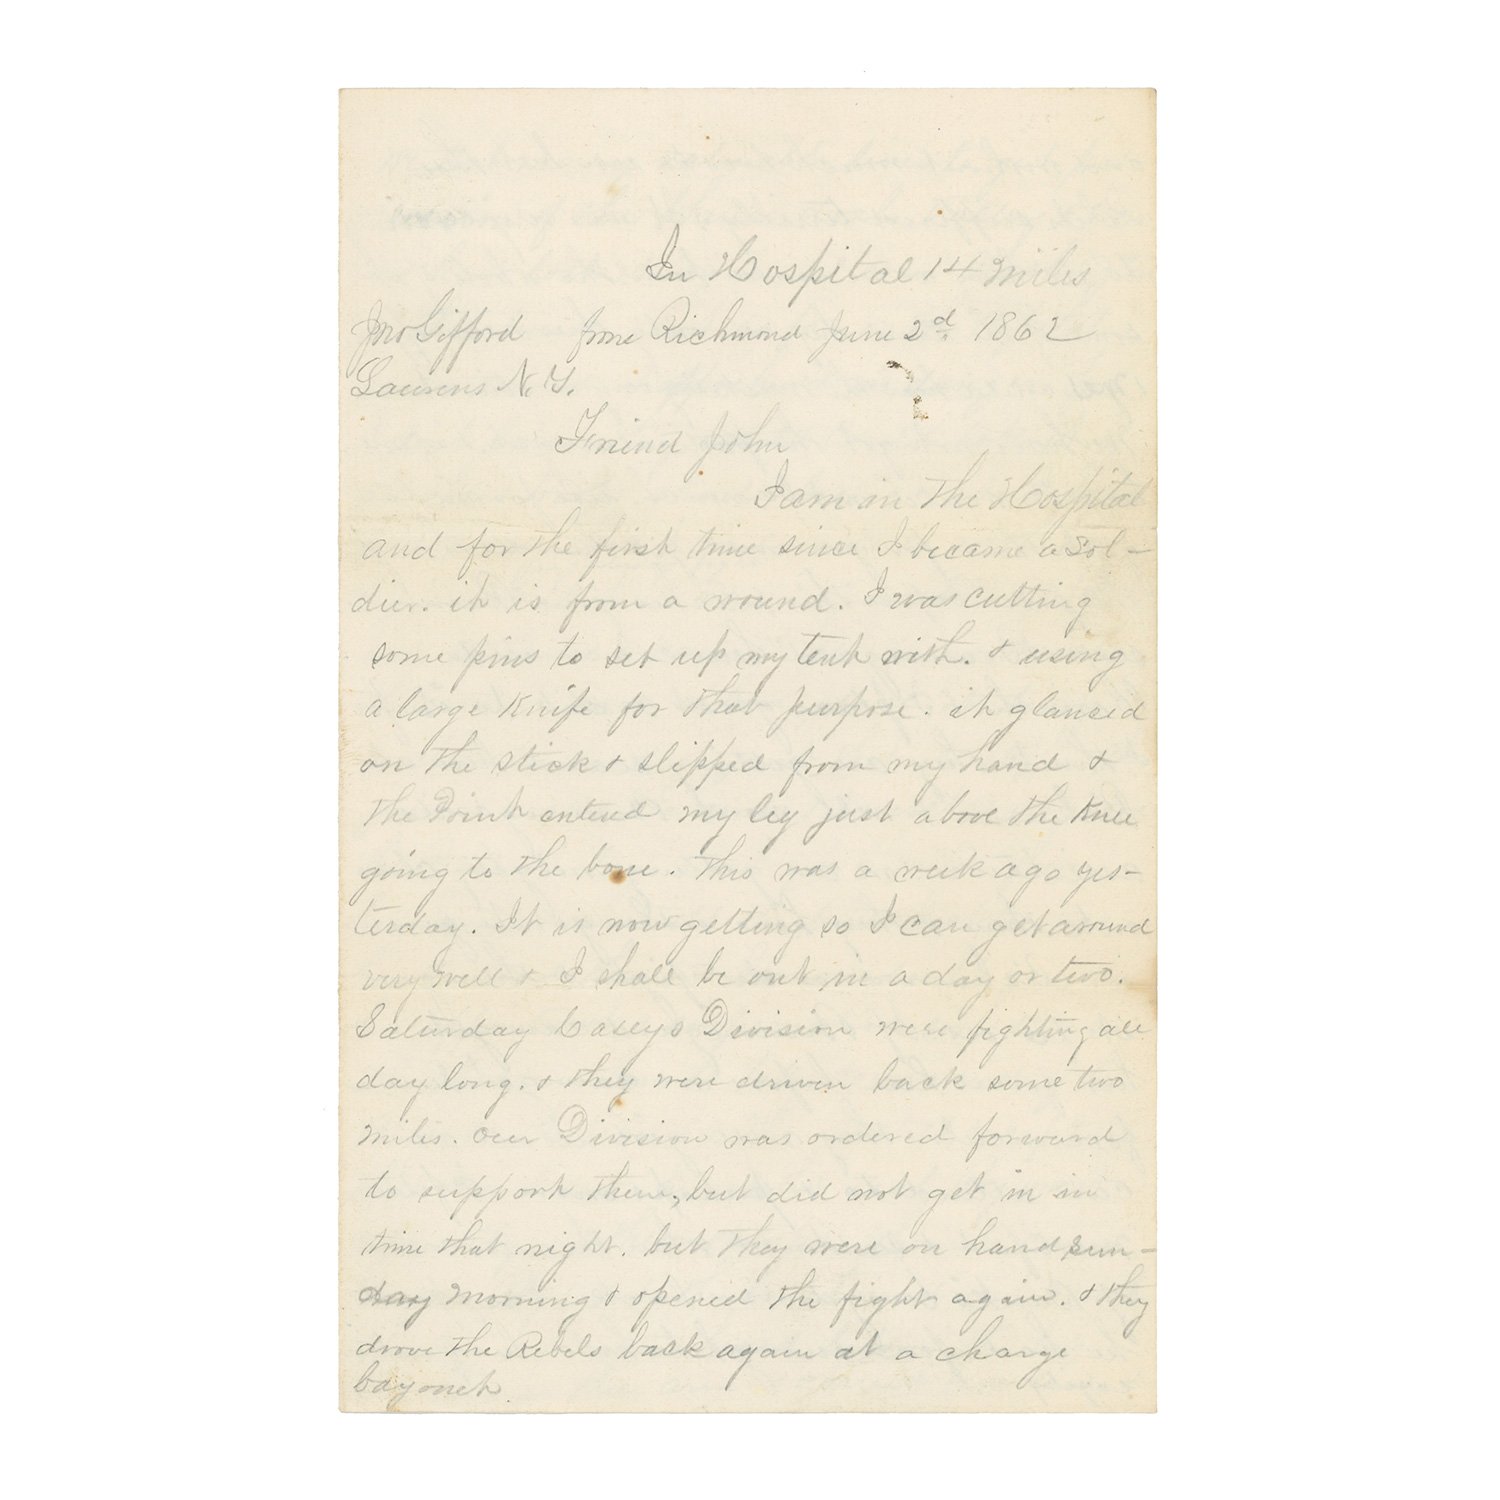 In Hospital 14 miles
Jno Gifford from Richmond June 2d. 1862
Laurens N.Y.
Friend John
I am in the Hospital
and for the first time since I became a sol-
dier. it is from a wound. I was cutting
some pins to set up my tent with. & using
a large Knife for that purpose. it glanced
on the stick & slipped from my hand &
the Point entered my leg just above the Knee
going to the bone. this was a week ago yes-
terday. It is now getting so I can get around
very well & I shall be out in a day or two.
Saturday Caseys Division were fighting all
day long. & they were driven back some two
miles. our Division was ordered forward
to support them, but did not get in in
time that night. but they were on hand sun-
day morning & opened the fight again. & they
drove the Rebels back again at a charge
bayonet